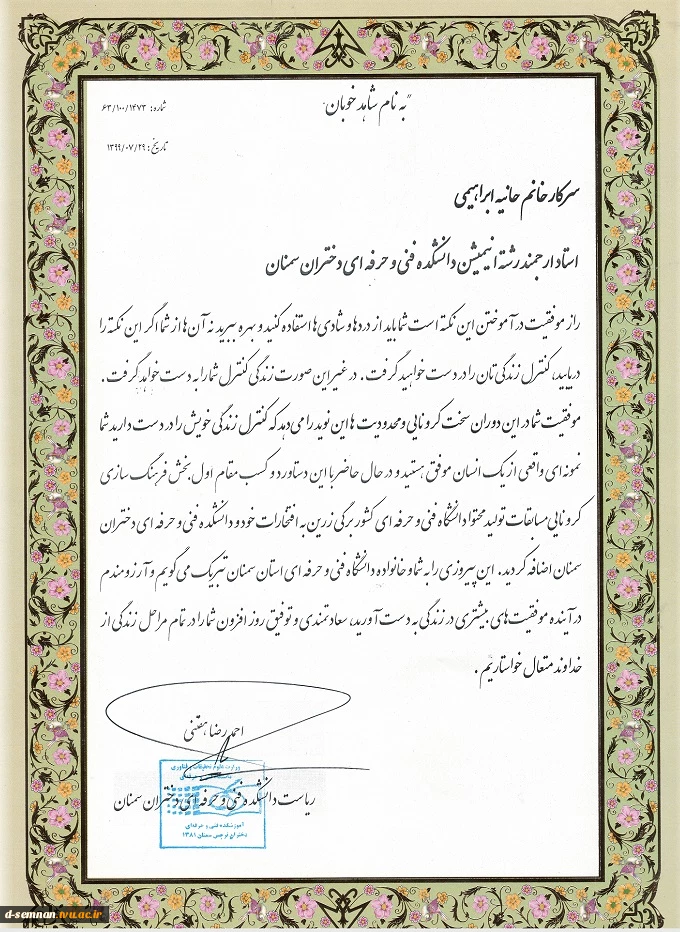 "به نام شاهد خوبان"
شماره: ۶۳/۱۰۰/۱۴۷۳
تاریخ: ۱۳۹۹/۰۷/۲۹
سرکار خانم حانیه ابراهیمی
استاد ارجمند رشته انیمیشن دانشکده فنی و حرفه ای دختران سمنان
راز موفقیت در آموختن این نکته است شما باید از دردها و شادی ها استفاده کنید و بهره ببرید نه آن ها از شما اگر این نکته را
دریابید، کنترل زندگی تان را در دست خواهید گرفت. در غیر این صورت زندگی کنترل شما را به دست خواهد گرفت.
موفقیت شما در این دوران سخت کرونایی و محدودیت ها این نوید را می دهد که کنترل زندگی خویش را در دست دارید شما
نمونه ای واقعی از یک انسان موفق هستید و در حال حاضر با این دستاورد و کسب مقام اول بخش فرهنگ سازی
کرونایی مسابقات تولید محتوا دانشگاه فنی و حرفه ای کشور برگی زرین به افتخارات خود و دانشکده فنی و حرفه ای دختران
سمنان اضافه کردید. این پیروزی را به شما و خانواده دانشگاه فنی و حرفه ای استان سمنان تبریک می گویم و آرزومندم
در آینده موفقیت های بیشتری در زندگی به دست آورید، سعادتمندی و توفیق روز افزون شما را در تمام مراحل زندگی از
خداوند متعال خواستاریم.
احمد رضا هفتنی
وزارت علوم تحقیقات و فناوری
ریاست دانشکده فنی و حرفه ای دختران سمنان
آموزشکده فنی و حرفه ای
دختران نرجس سمنان ۱۳۸۱
d-semnan.tvu.ac.ir